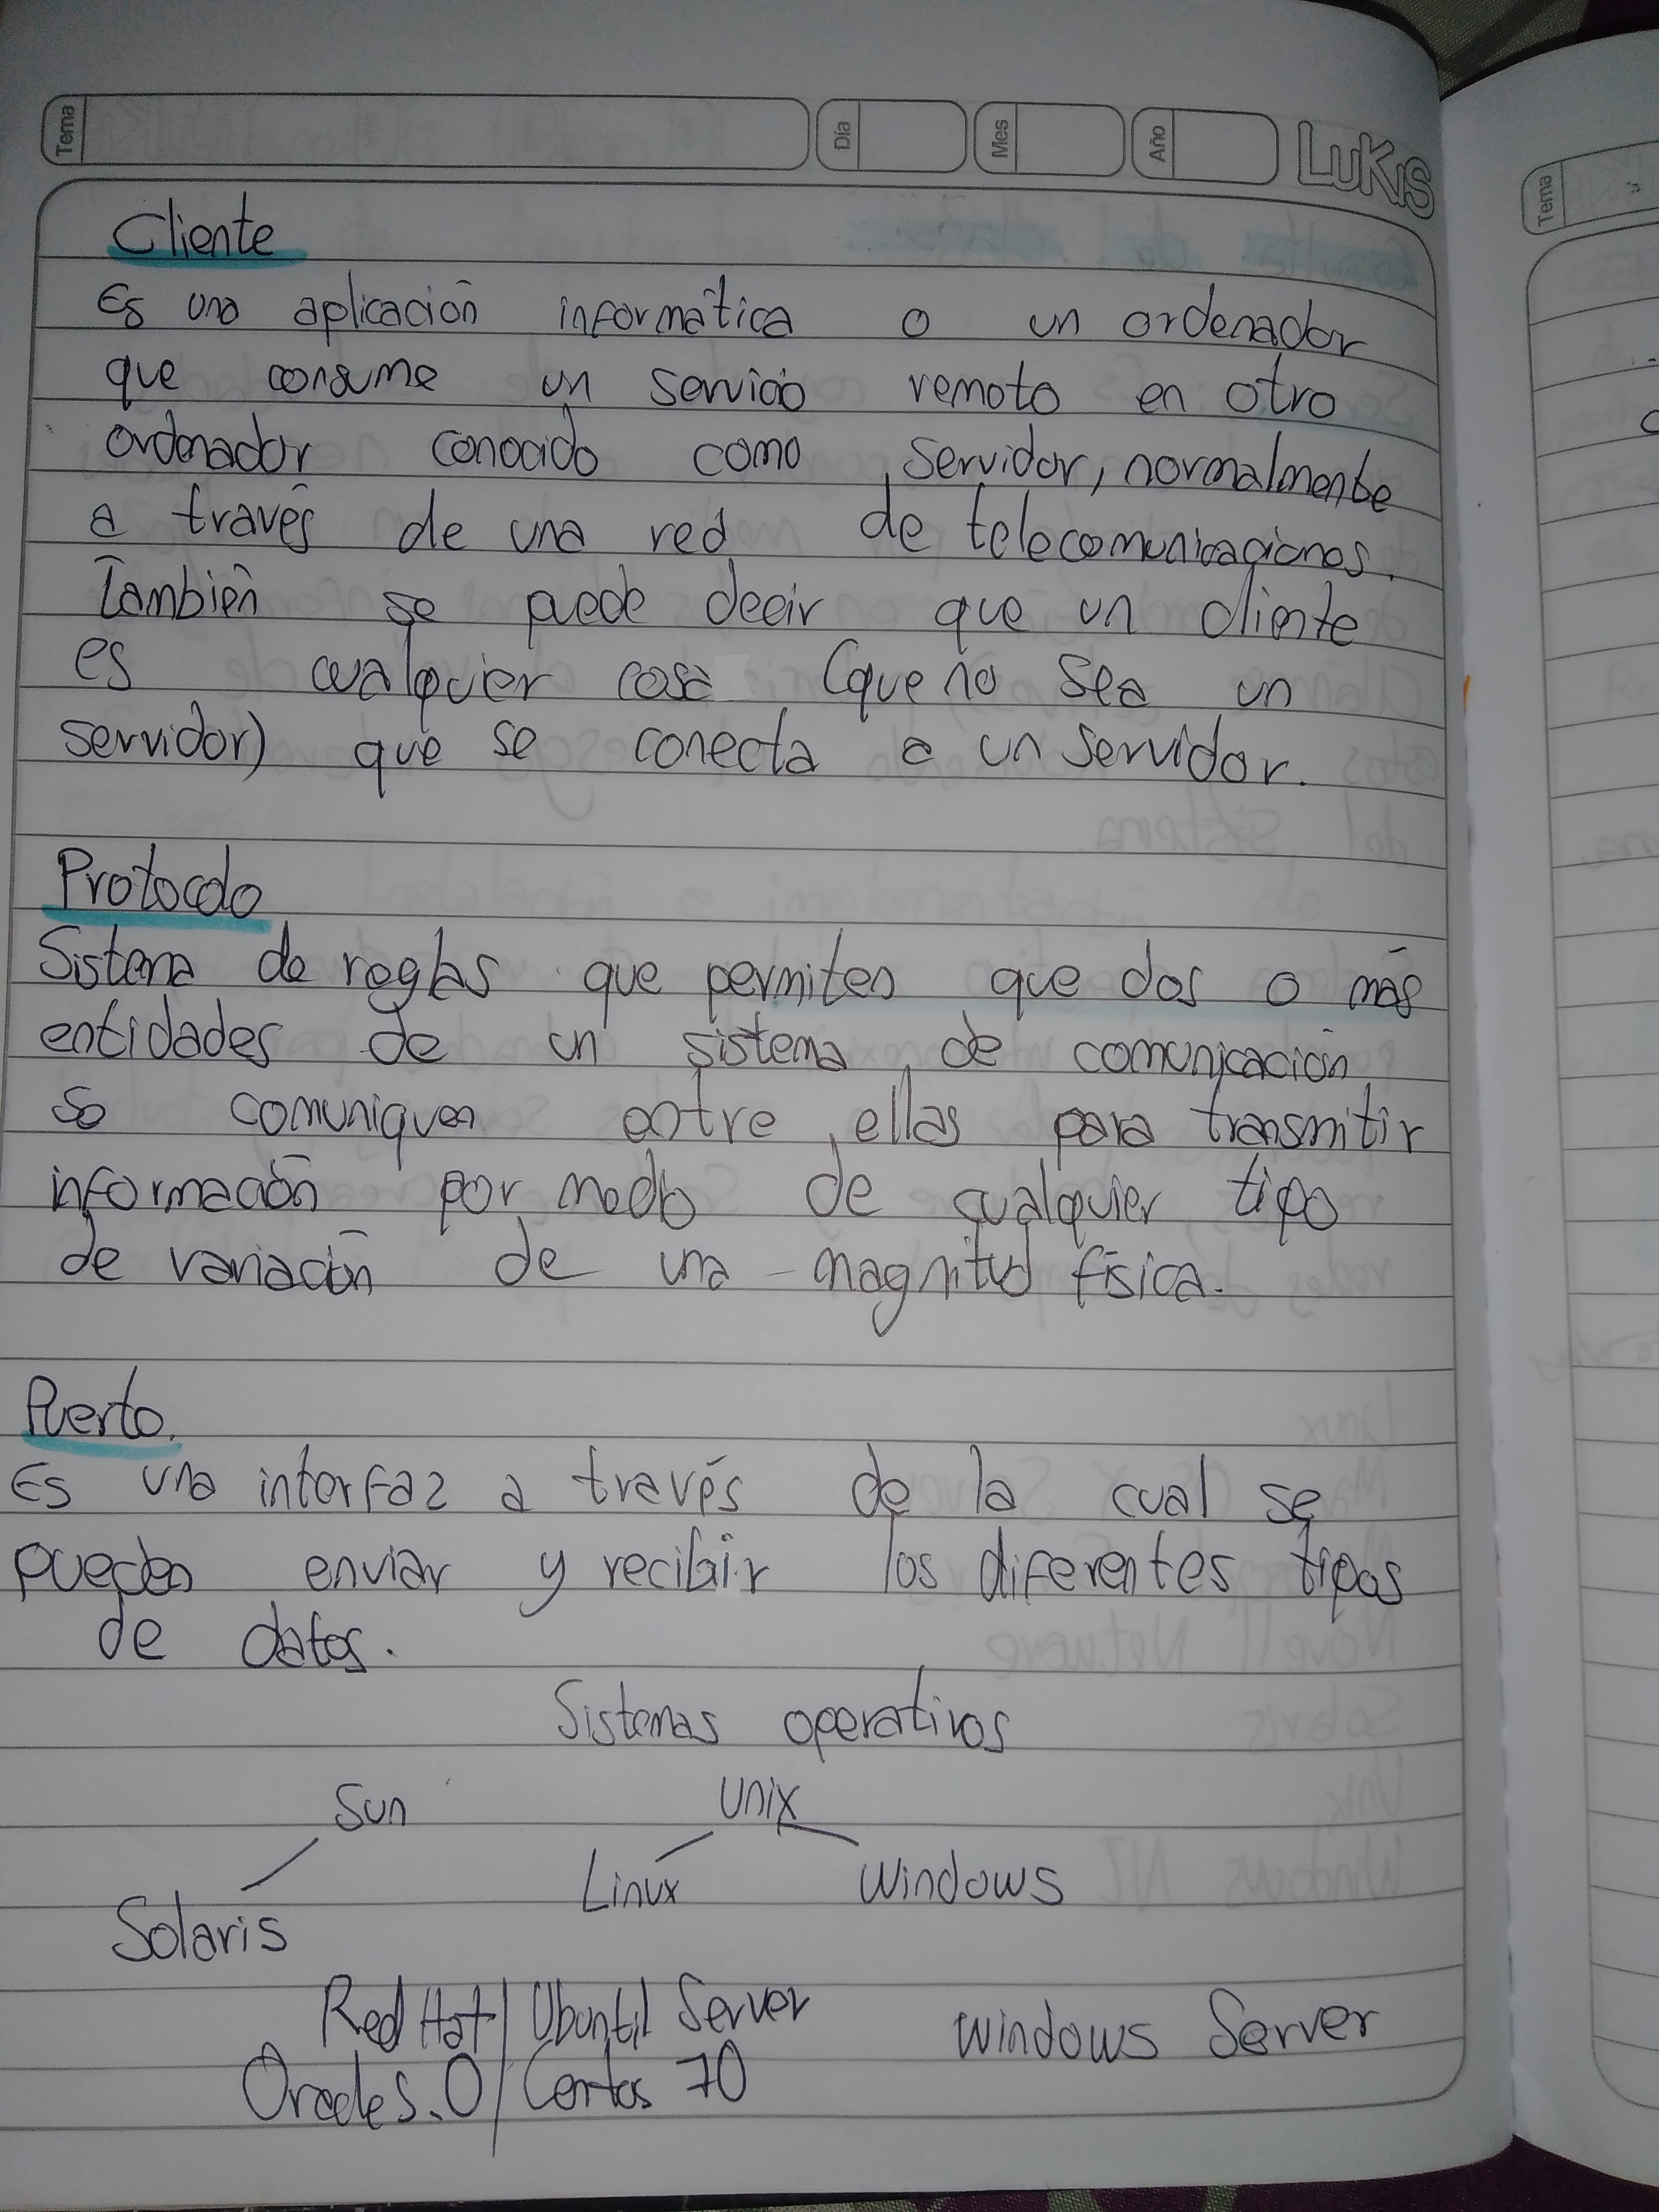 Tema Día Mes Año LUKIS
Tema
Cliente
Es una aplicación informática o un ordenador
que consume un servicio remoto en otro
ordenador conocido como servidor, normalmente
a través de una red de telecomunicaciones.
También se puede decir que un cliente
es cualquier cosa (que no sea un
servidor) que se conecta a un servidor.
Protocolo
Sistema de reglas que permiten que dos o más
entidades de un sistema de comunicación
se comuniquen entre ellas para transmitir
información por medio de cualquier tipo
de variación de una magnitud física.
Puerto.
Es una interfaz a través de la cual se
pueden enviar y recibir los diferentes tipos
de datos.
Sistemas operativos
Sun Unix
Linux Windows
Solaris
Red Hat | Ubuntu Server Windows Server
Oracle S.O | Centos 70